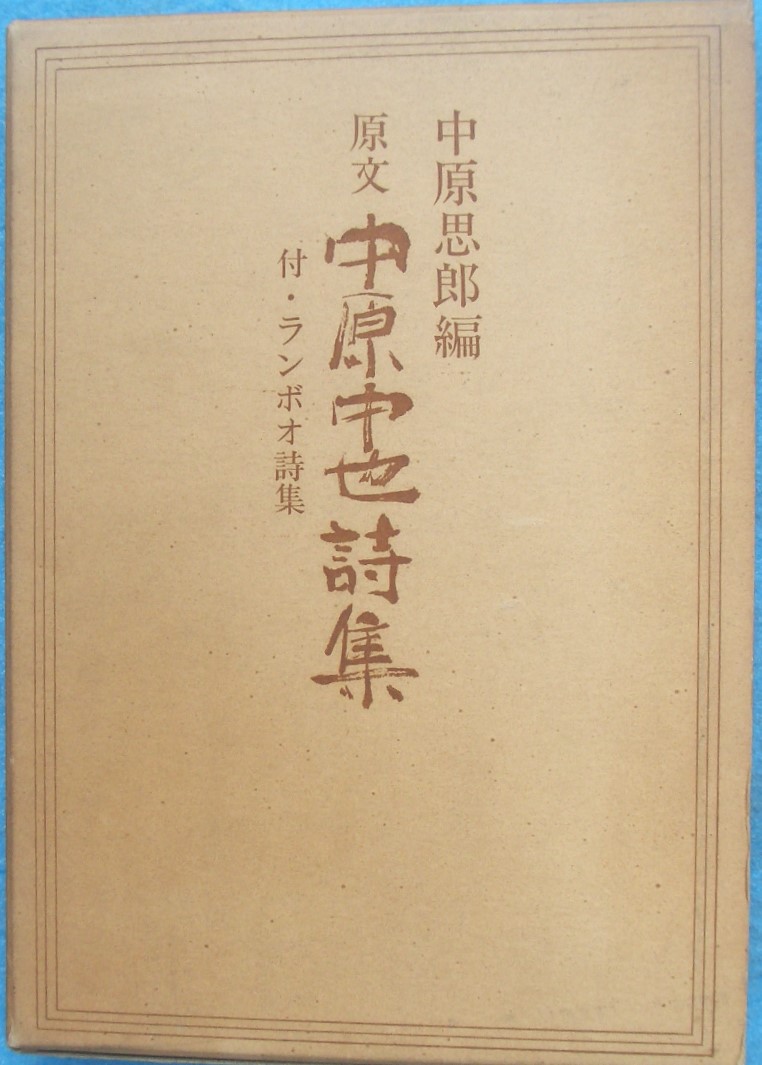 中原思郎編
原文 中原中也詩集
付・ランボオ詩集